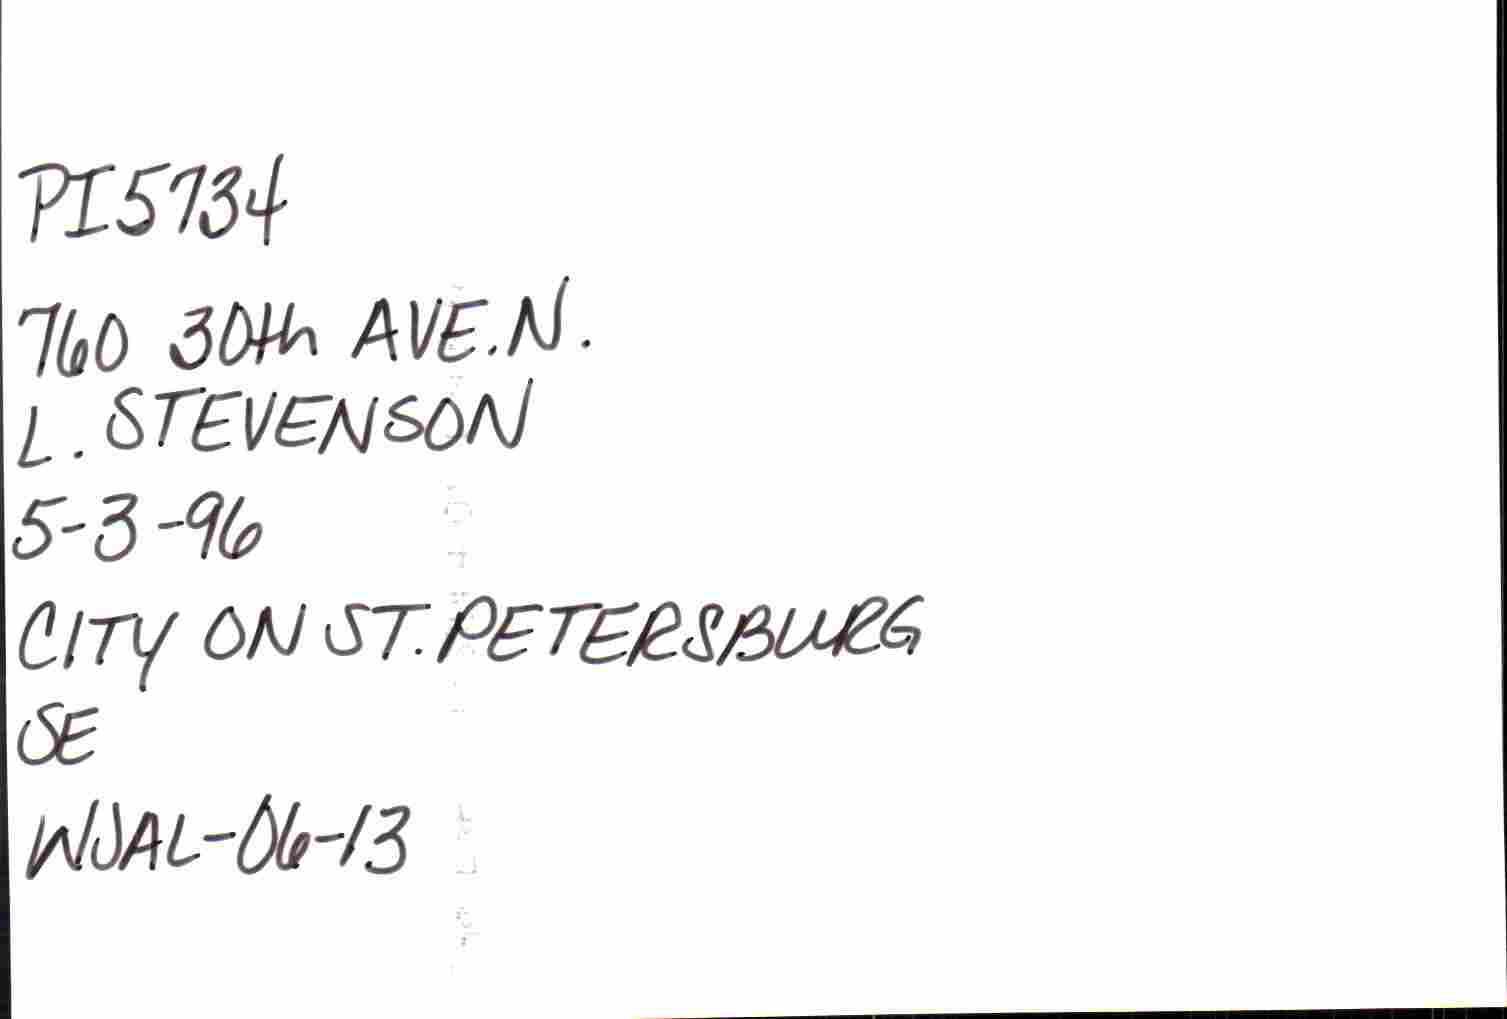 PI5734
760 30th AVE.N.
L. STEVENSON
5-3-96
CITY ON ST. PETERSBURG
SE
WJAL-06-13